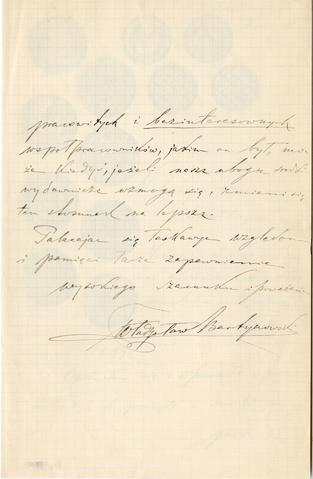 pracowitych i bezinteresownych
współpracowników, jakim on był, mo-
że kiedyś, jeżeli nasz ubogi
wydawnicze wzmogą się, zmieni się
ten stosunek na lepsze.
Polecając się łaskawym względom
i pamięci łączę zapewnienie
wysokiego szacunku i poważania
Władysław Bartynowski